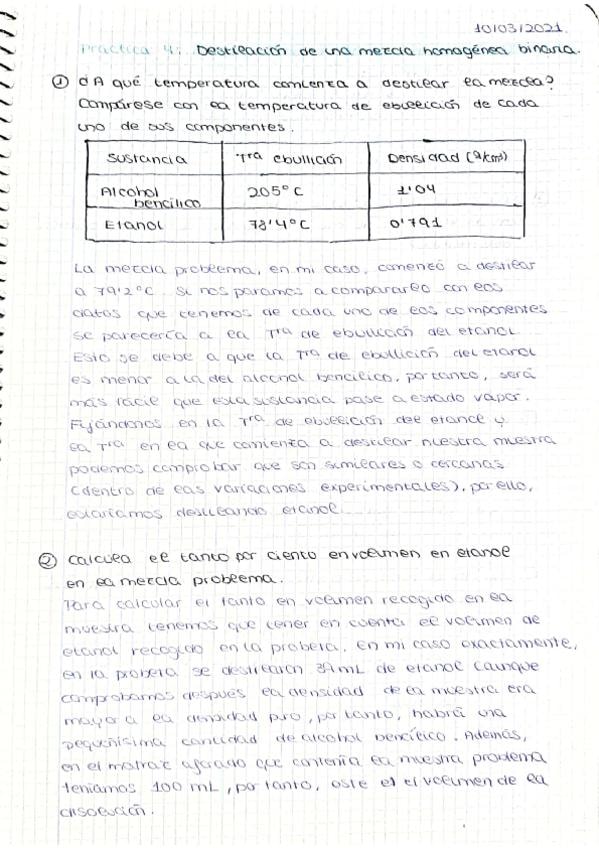 10/03/2021.
Práctica 4: Destilación de una mezcla homogénea binaria.
① ¿A qué temperatura comienza a destilar la mezcla?
Compárese con la temperatura de ebullición de cada
uno de sus componentes.
Sustancia Tra ebullición Densidad (g/cm³)
Alcohol bencílico 205°C 1'04
Etanol 78'4°C 0'791
La mezcla problema, en mi caso, comenzó a destilar
a 79'2°C. Si nos paramos a compararlo con los
datos que tenemos de cada uno de los componentes
se parecería a la Tra de ebullición del etanol.
Esto se debe a que la Tra de ebullición del etanol
es menor a la del alcohol bencílico, por tanto, será
más fácil que esta sustancia pase a estado vapor.
Fijándonos en la Tra de ebullición del etanol y
la Tra en la que comienza a destilar nuestra muestra
podemos comprobar que son similares o cercanas
(dentro de las variaciones experimentales), por ello,
estaríamos destilando etanol.
② Calcula el tanto por ciento en volumen en etanol
en la mezcla problema.
Para calcular el tanto en volumen recogido en la
muestra tenemos que tener en cuenta el volumen de
etanol recogido en la probeta. En mi caso exactamente,
en la probeta se destilaron mL de etanol (aunque
comprobamos después la densidad de la muestra era
mayor a la densidad puro, por tanto, habrá una
pequeñísima cantidad de alcohol bencílico. Además,
en el matraz aforado que contenía la muestra problema
teníamos 100 mL, por tanto, este es el volumen de la
disolución.